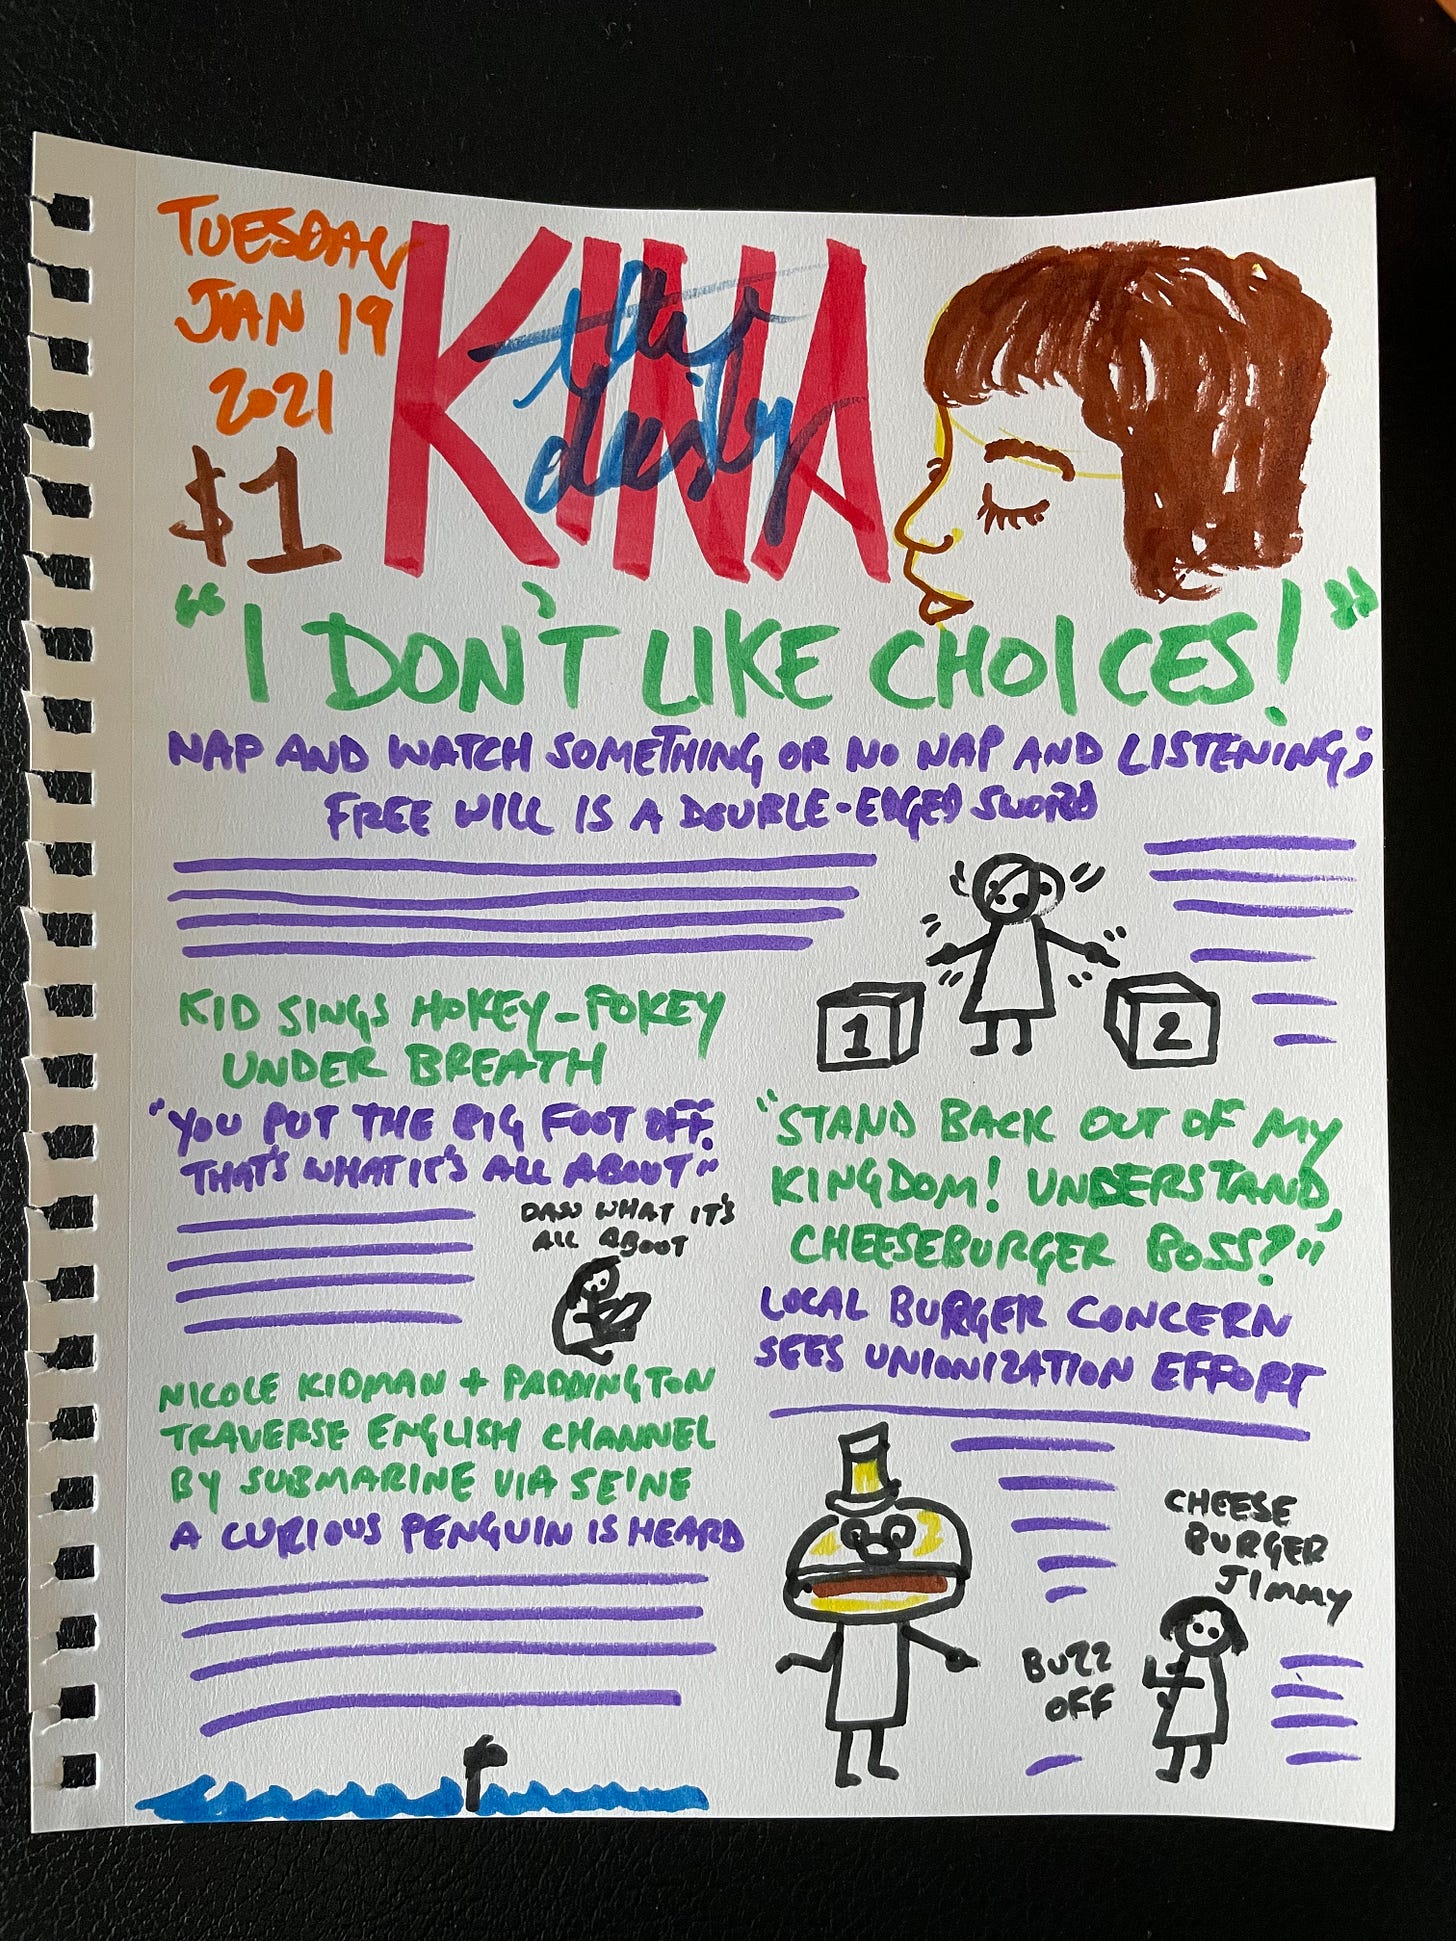 TUESDAY
JAN 19
2021
$1
KINA
the daily
"I DON'T LIKE CHOICES!"
NAP AND WATCH SOMETHING OR NO NAP AND LISTENING;
FREE WILL IS A DOUBLE-EDGED SWORD
1
2
KID SINGS HOKEY-POKEY
UNDER BREATH
"YOU PUT THE BIG FOOT OFF.
THAT'S WHAT IT'S ALL ABOUT"
DASS WHAT IT'S
ALL ABOOT
NICOLE KIDMAN + PADDINGTON
TRAVERSE ENGLISH CHANNEL
BY SUBMARINE VIA SEINE
A CURIOUS PENGUIN IS HEARD
"STAND BACK OUT OF MY
KINGDOM! UNDERSTAND,
CHEESEBURGER BOSS?"
LOCAL BURGER CONCERN
SEES UNIONIZATION EFFORT
CHEESE
BURGER
JIMMY
BUZZ
OFF